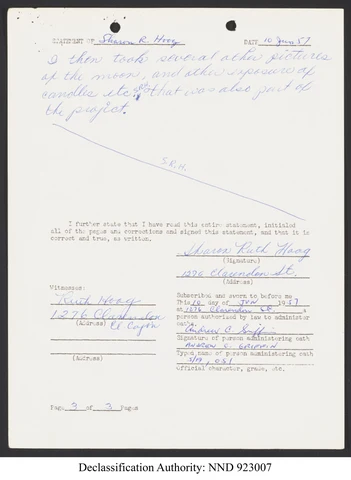 STATEMENT OF Sharon R. Hoag DATE 10 Jun 57
I then took several other pictures
of the moon, and other exposure of
candles etc. that was also part of
the project.
S.R.H.
I further state that I have read this entire statement, initialed
all of the pages and corrections and signed this statement, and that it is
correct and true, as written.
Sharon Ruth Hoag
(Signature)
1276 Clarendon St.
(Address)
Witnesses:
Ruth Hoag
1276 Clarendon
(Address) El Cajon
(Address)
Subscribed and sworn to before me
This 10 day of JUN 1957
at 1276 Clarendon St. a
person authorized by law to administer
oaths.
Andrew C. Griffin
Signature of person administering oath
ANDREW C. GRIFFIN
Typed name of person administering oath
S/A, OSI
Official character, grade, etc.
Page 3 of 3 Pages
Declassification Authority: NND 923007